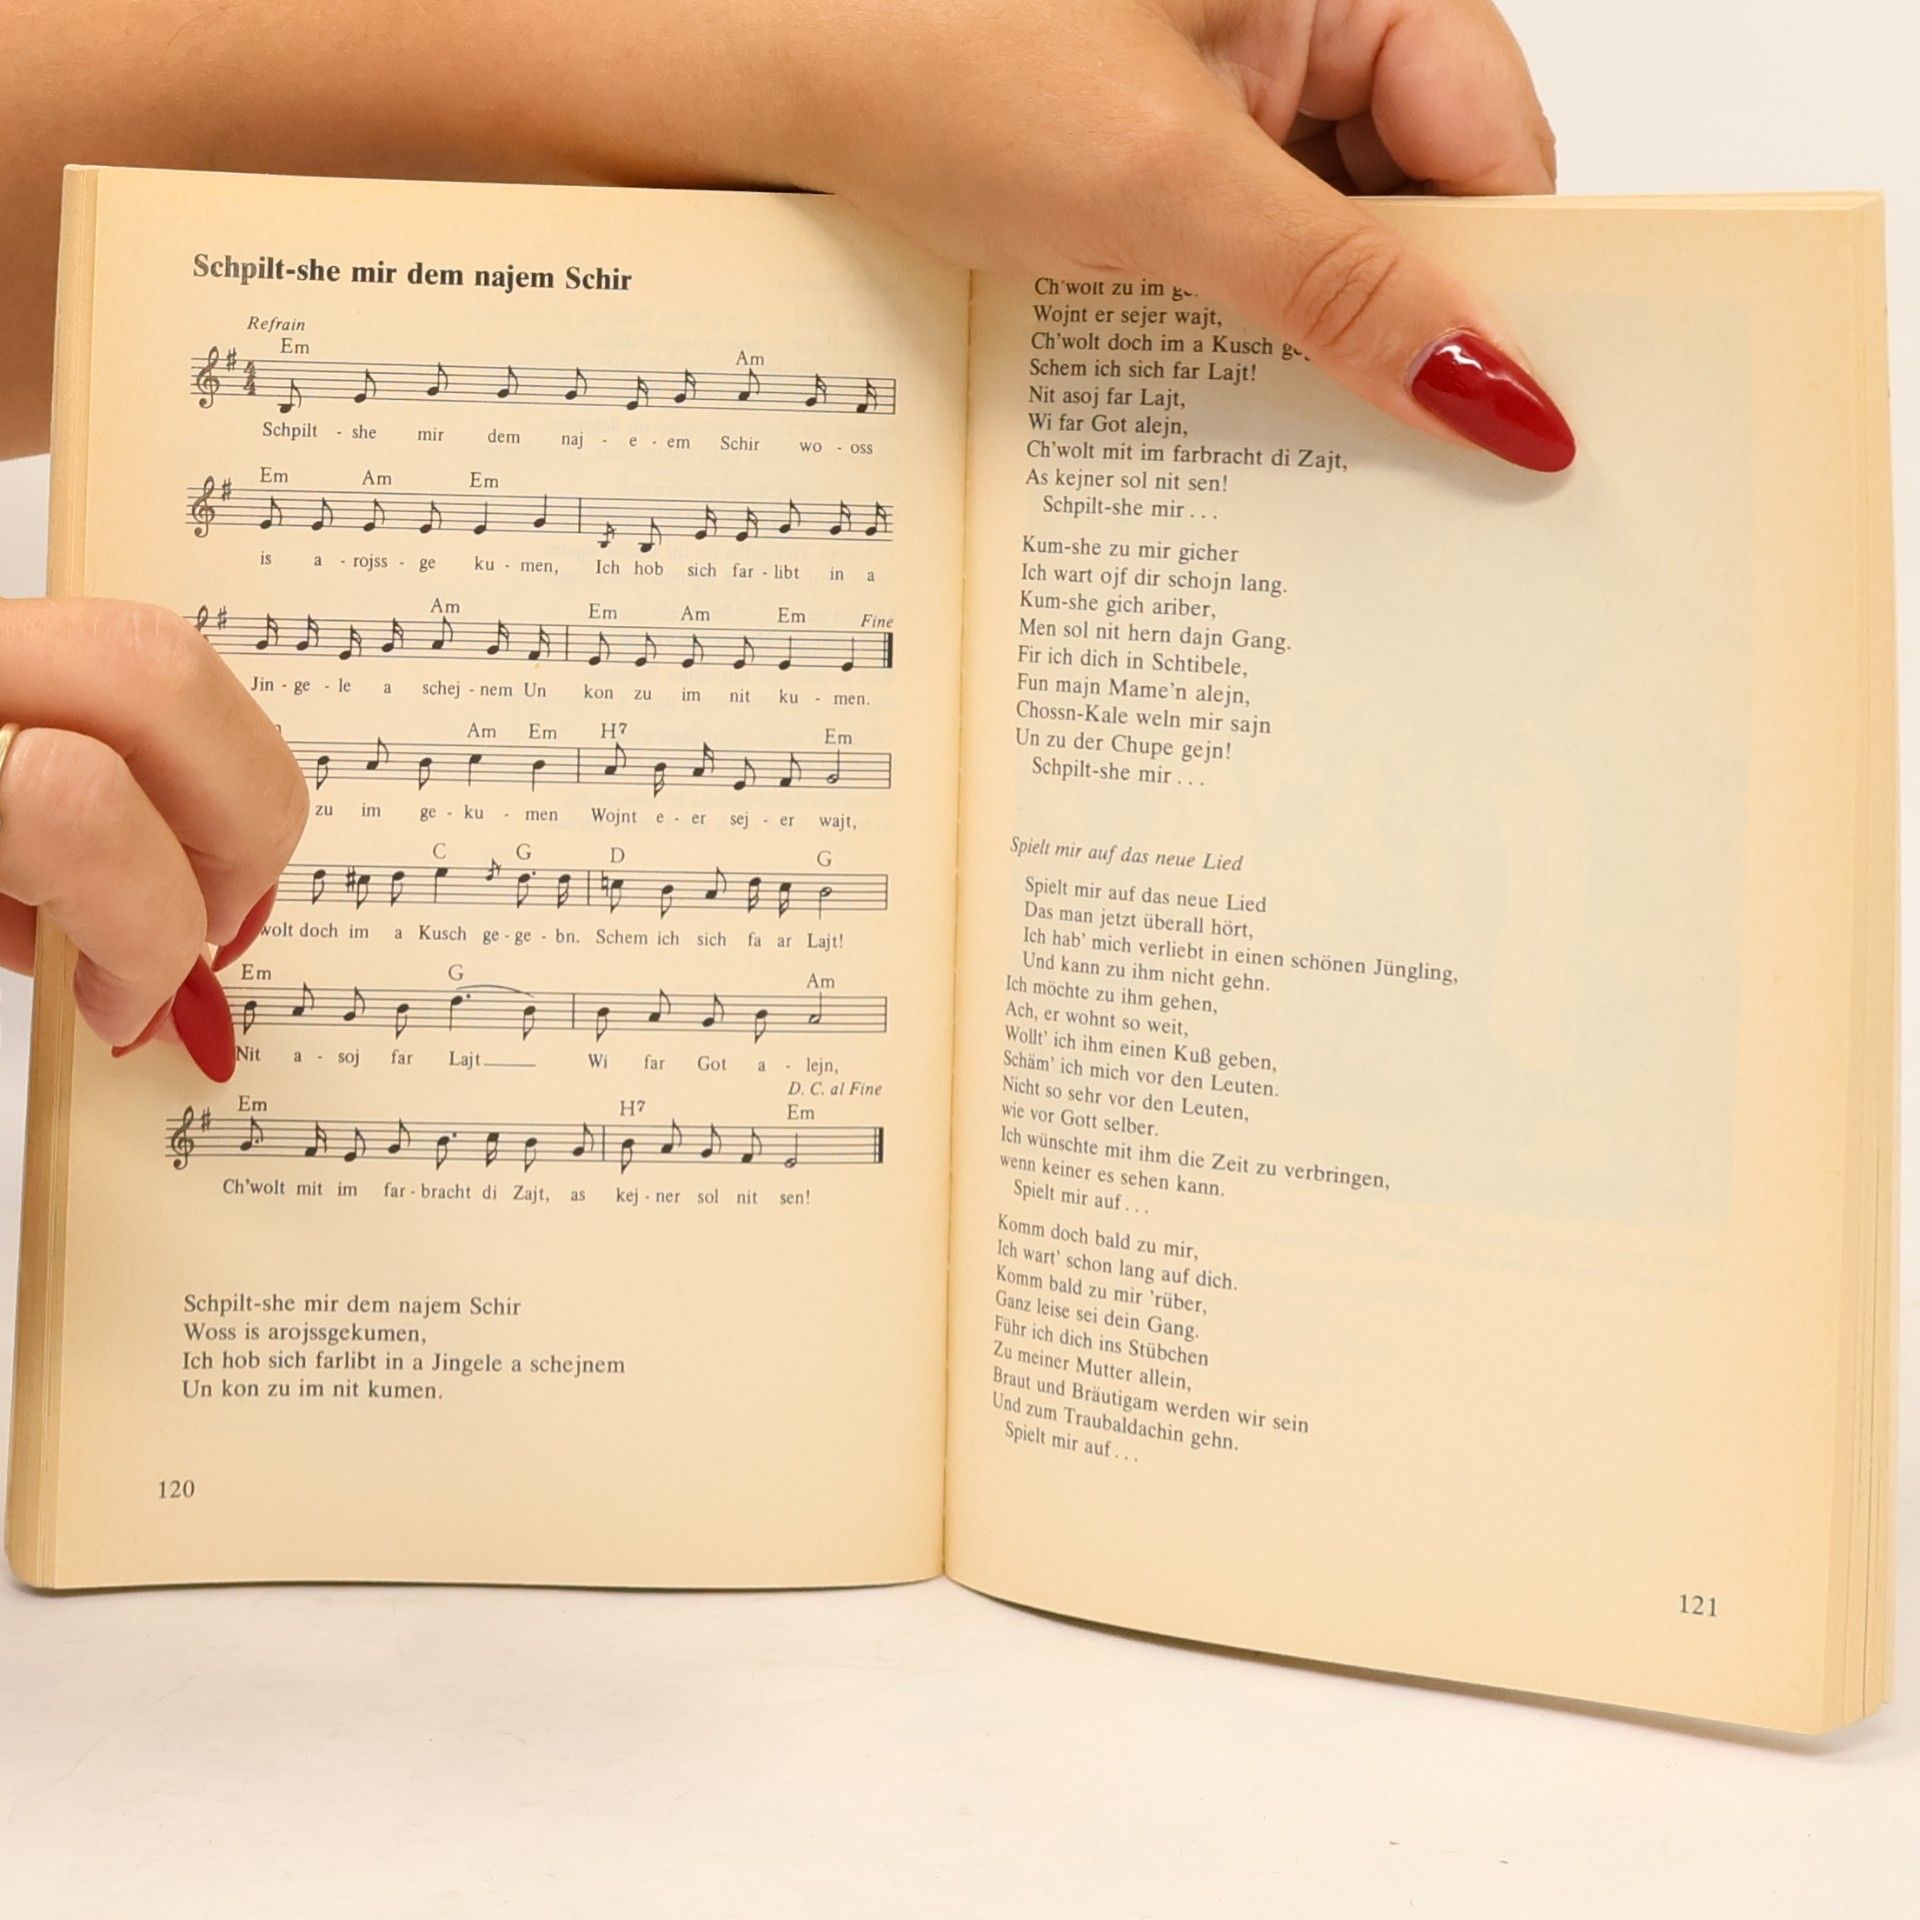 Schpilt-she mir dem najem Schir
Refrain
Em Am
Schpilt - she mir dem naj - e - em Schir wo - oss
Em Am Em
is a - rojss - ge ku - men, Ich hob sich far - libt in a
Am Em Am Em Fine
Jin - ge - le a schej - nem Un kon zu im nit ku - men.
Am Em H7 Em
zu im ge - ku - men Wojnt e - er sej - er wajt,
C G D G
wolt doch im a Kusch ge - ge - bn. Schem ich sich fa ar Lajt!
Em G Am
Nit a - soj far Lajt Wi far Got a - lejn,
D. C. al Fine
Em H7 Em
Ch'wolt mit im far - bracht di Zajt, as kej - ner sol nit sen!
Schpilt-she mir dem najem Schir
Woss is arojssgekumen,
Ich hob sich farlibt in a Jingele a schejnem
Un kon zu im nit kumen.
120
Ch'wolt zu im
Wojnt er sejer wajt,
Ch'wolt doch im a Kusch
Schem ich sich far Lajt!
Nit asoj far Lajt,
Wi far Got alejn,
Ch'wolt mit im farbracht di Zajt,
As kejner sol nit sen!
Schpilt-she mir . . .
Kum-she zu mir gicher
Ich wart ojf dir schojn lang.
Kum-she gich ariber,
Men sol nit hern dajn Gang.
Fir ich dich in Schtibele,
Fun majn Mame'n alejn,
Chossn-Kale weln mir sajn
Un zu der Chupe gejn!
Schpilt-she mir . . .
Spielt mir auf das neue Lied
Spielt mir auf das neue Lied
Das man jetzt überall hört,
Ich hab' mich verliebt in einen schönen Jüngling,
Und kann zu ihm nicht gehn.
Ich möchte zu ihm gehen,
Ach, er wohnt so weit,
Wollt' ich ihm einen Kuß geben,
Schäm' ich mich vor den Leuten.
Nicht so sehr vor den Leuten,
wie vor Gott selber.
Ich wünschte mit ihm die Zeit zu verbringen,
wenn keiner es sehen kann.
Spielt mir auf . . .
Komm doch bald zu mir,
Ich wart' schon lang auf dich.
Komm bald zu mir 'rüber,
Ganz leise sei dein Gang.
Führ ich dich ins Stübchen
Zu meiner Mutter allein,
Braut und Bräutigam werden wir sein
Und zum Traubaldachin gehn.
Spielt mir auf . . .
121